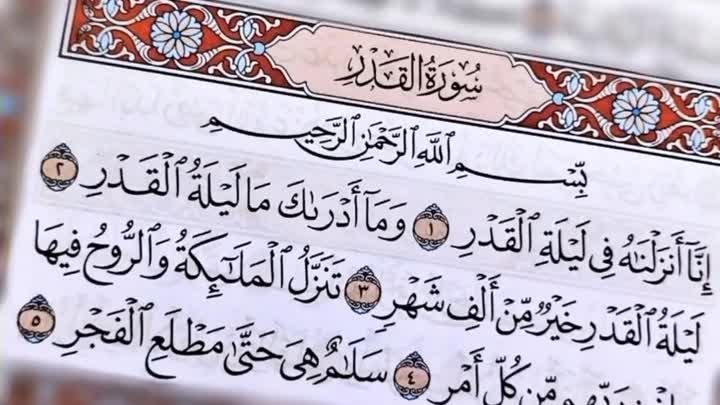 سُورَةُ القَدْرِ
بِسْمِ ٱللَّهِ ٱلرَّحْمَٰنِ ٱلرَّحِيمِ
إِنَّآ أَنزَلْنَٰهُ فِى لَيْلَةِ ٱلْقَدْرِ ١ وَمَآ أَدْرَىٰكَ مَا لَيْلَةُ ٱلْقَدْرِ ٢
لَيْلَةُ ٱلْقَدْرِ خَيْرٌ مِّنْ أَلْفِ شَهْرٍ ٣ تَنَزَّلُ ٱلْمَلَٰٓئِكَةُ وَٱلرُّوحُ فِيهَا
مِّن كُلِّ أَمْرٍ ٤ سَلَٰمٌ هِىَ حَتَّىٰ مَطْلَعِ ٱلْفَجْرِ ٥